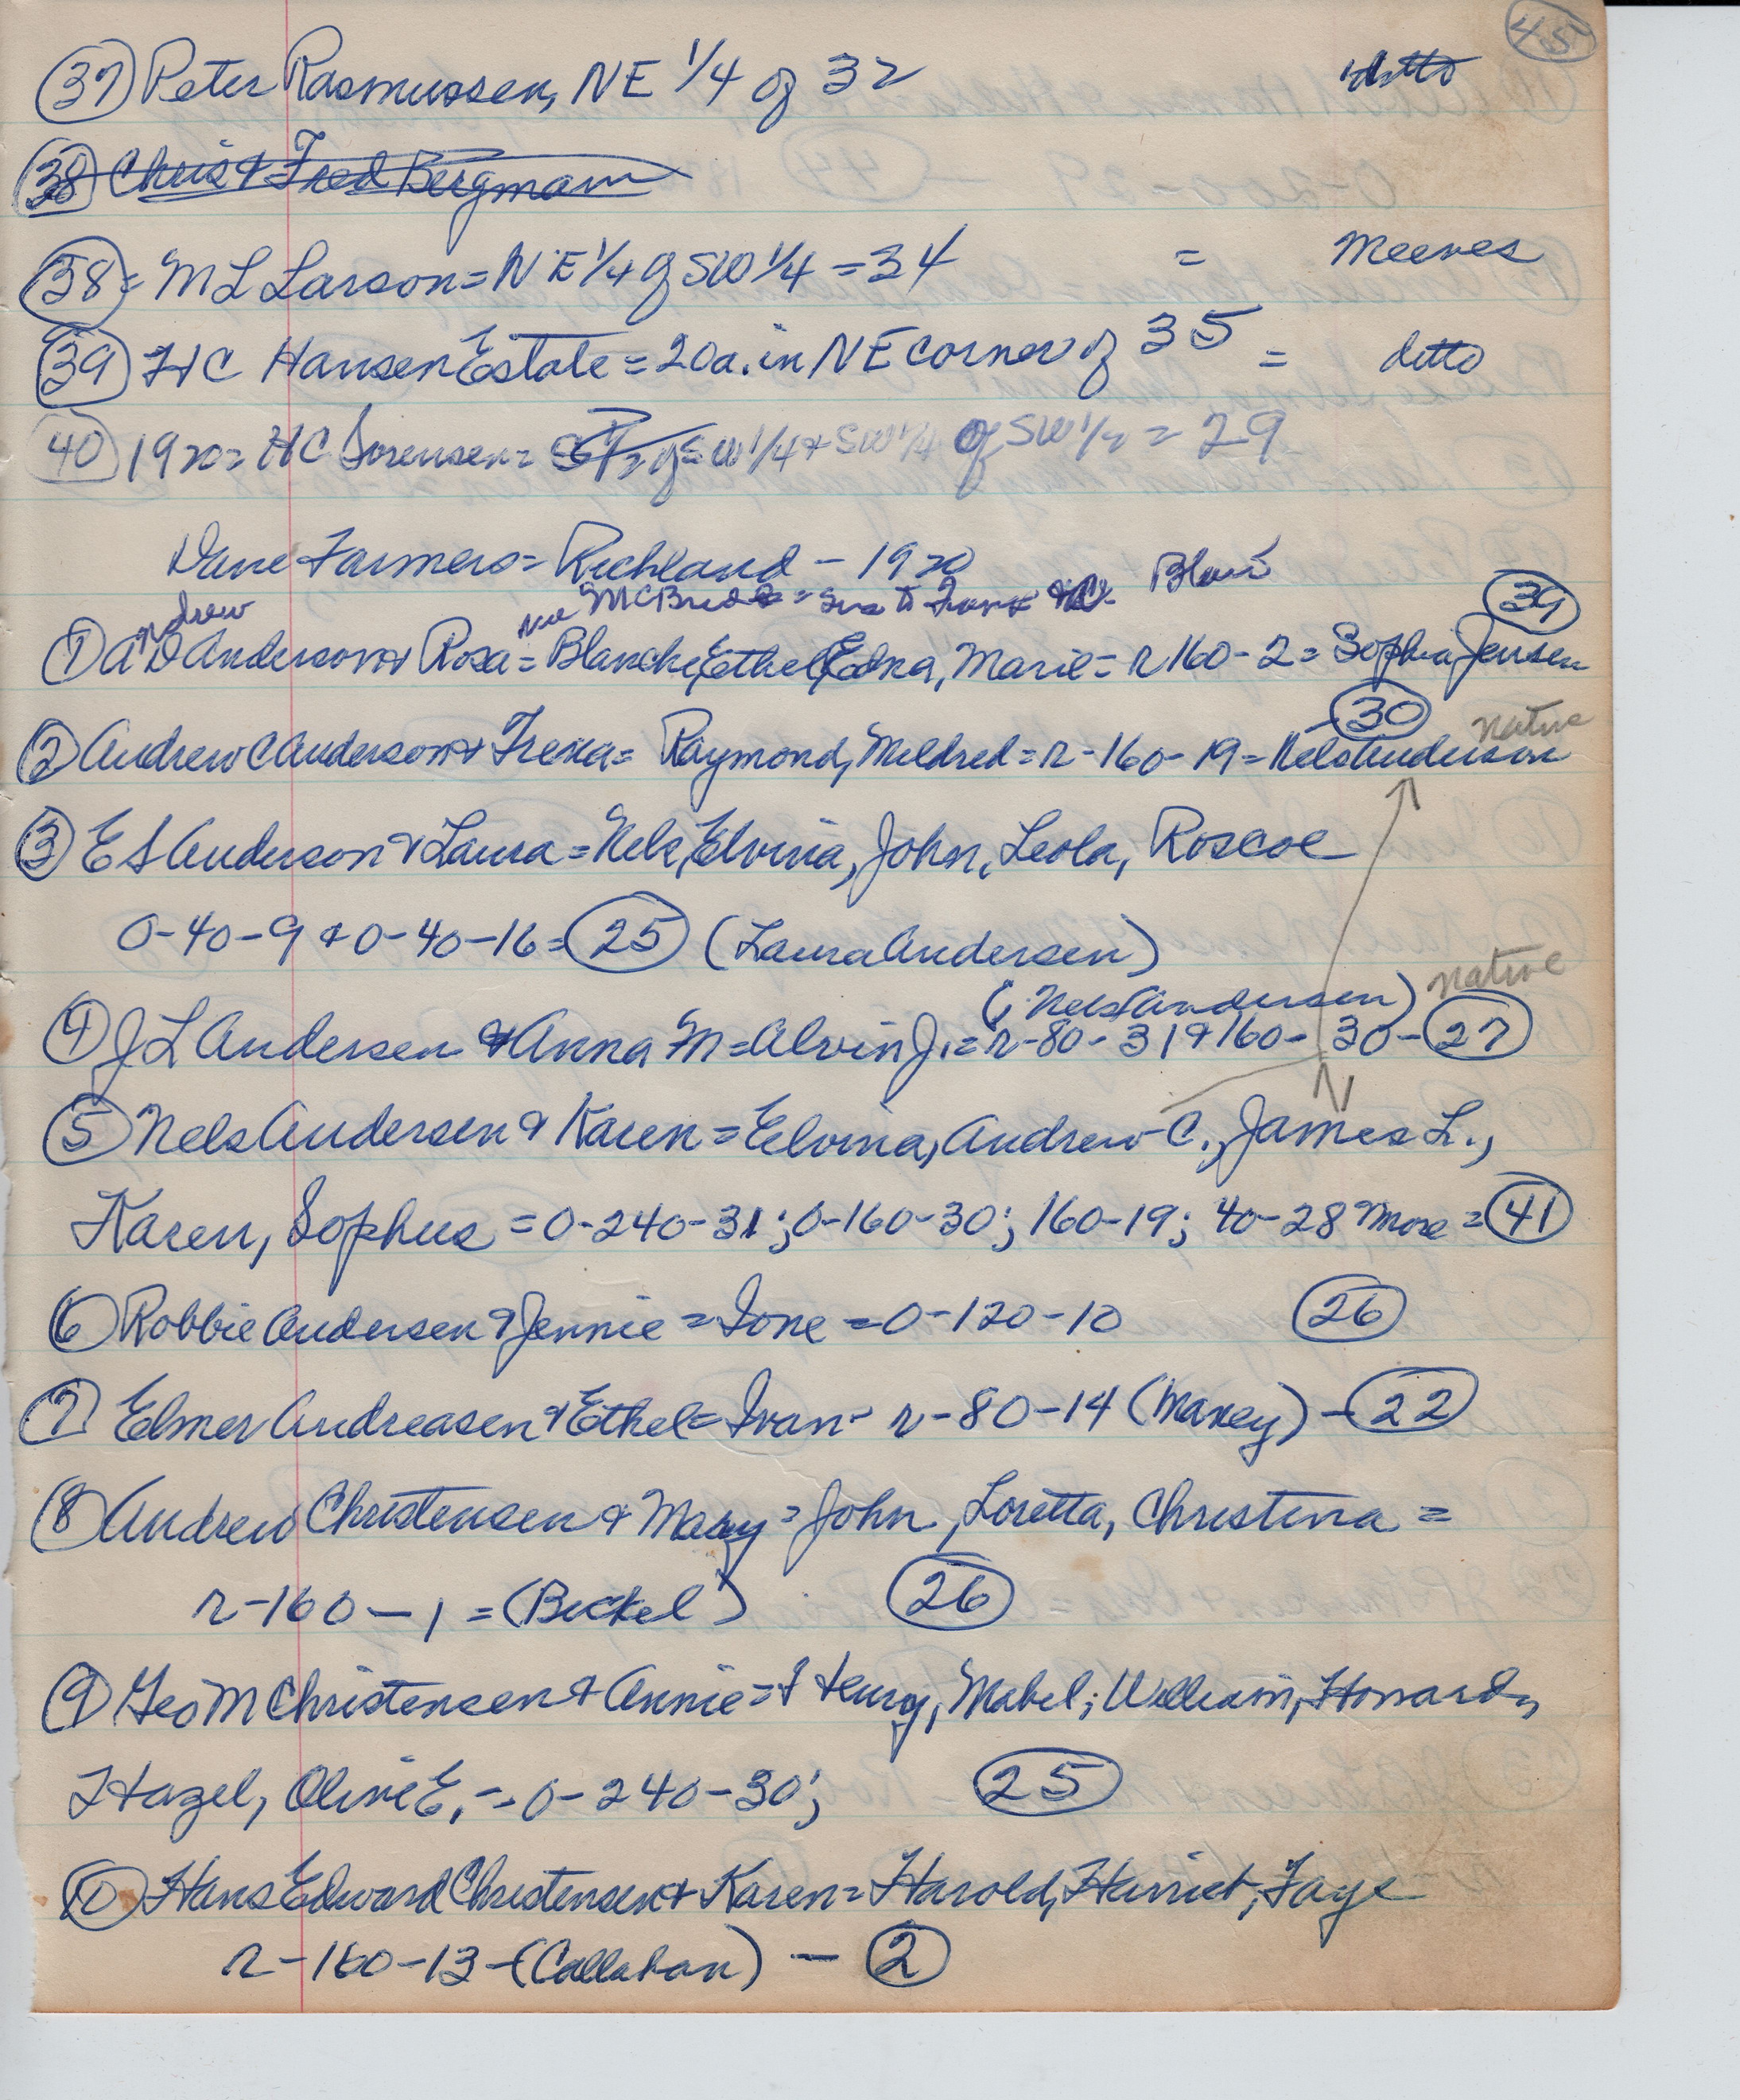 45
(37) Peter Rasmussen, NE 1/4 of 32 ditto
(38) Chris & Fred Bergmann
(38) = M L Larson = NE 1/4 of SW 1/4 = 34 = Meeves
(39) HC Hansen Estate = 20a. in NE corner of 35 = ditto
(40) 1920 = HC Sorensen = S 1/2 of SW 1/4 + SW 1/4 of SW 1/2 = 29
Dane Farmers = Richland - 1920
Andrew nee McBride = sis to Frank Blair (39)
(1) A D Anderson & Rosa = Blanche, Ethel, Edna, Marie = r 160-2 = Sophia Jensen
(30) native
(2) Andrew C Anderson & Trena = Raymond, Mildred = r-160-19 = Nels Anderson
(3) E S Anderson & Laura = Nels, Elvina, John, Leola, Roscoe
0-40-9 & 0-40-16 = (25) (Laura Andersen)
(Nels Andersen) native
(4) J L Andersen & Anna M = Alvin J. = r-80-31 & 160-30 - (27)
(5) Nels Andersen & Karen = Elvina, Andrew C., James L.,
Karen, Sophus = 0-240-31; 0-160-30; 160-19; 40-28 more = (41)
(6) Robbie Andersen & Jennie = Ione = 0-120-10 (26)
(7) Elmer Andreasen & Ethel = Ivan - r-80-14 (Maxey) - (22)
(8) Andrew Christensen & Mary = John, Loretta, Christina =
r-160-1 = (Bickel) (26)
(9) Geo M Christensen & Annie = Henry, Mabel; William, Howard,
Hazel, Olive E. - 0-240-30; (25)
(10) Hans Edward Christensen & Karen = Harold, Harriet, Faye
r-160-13 - (Callahan) - (2)